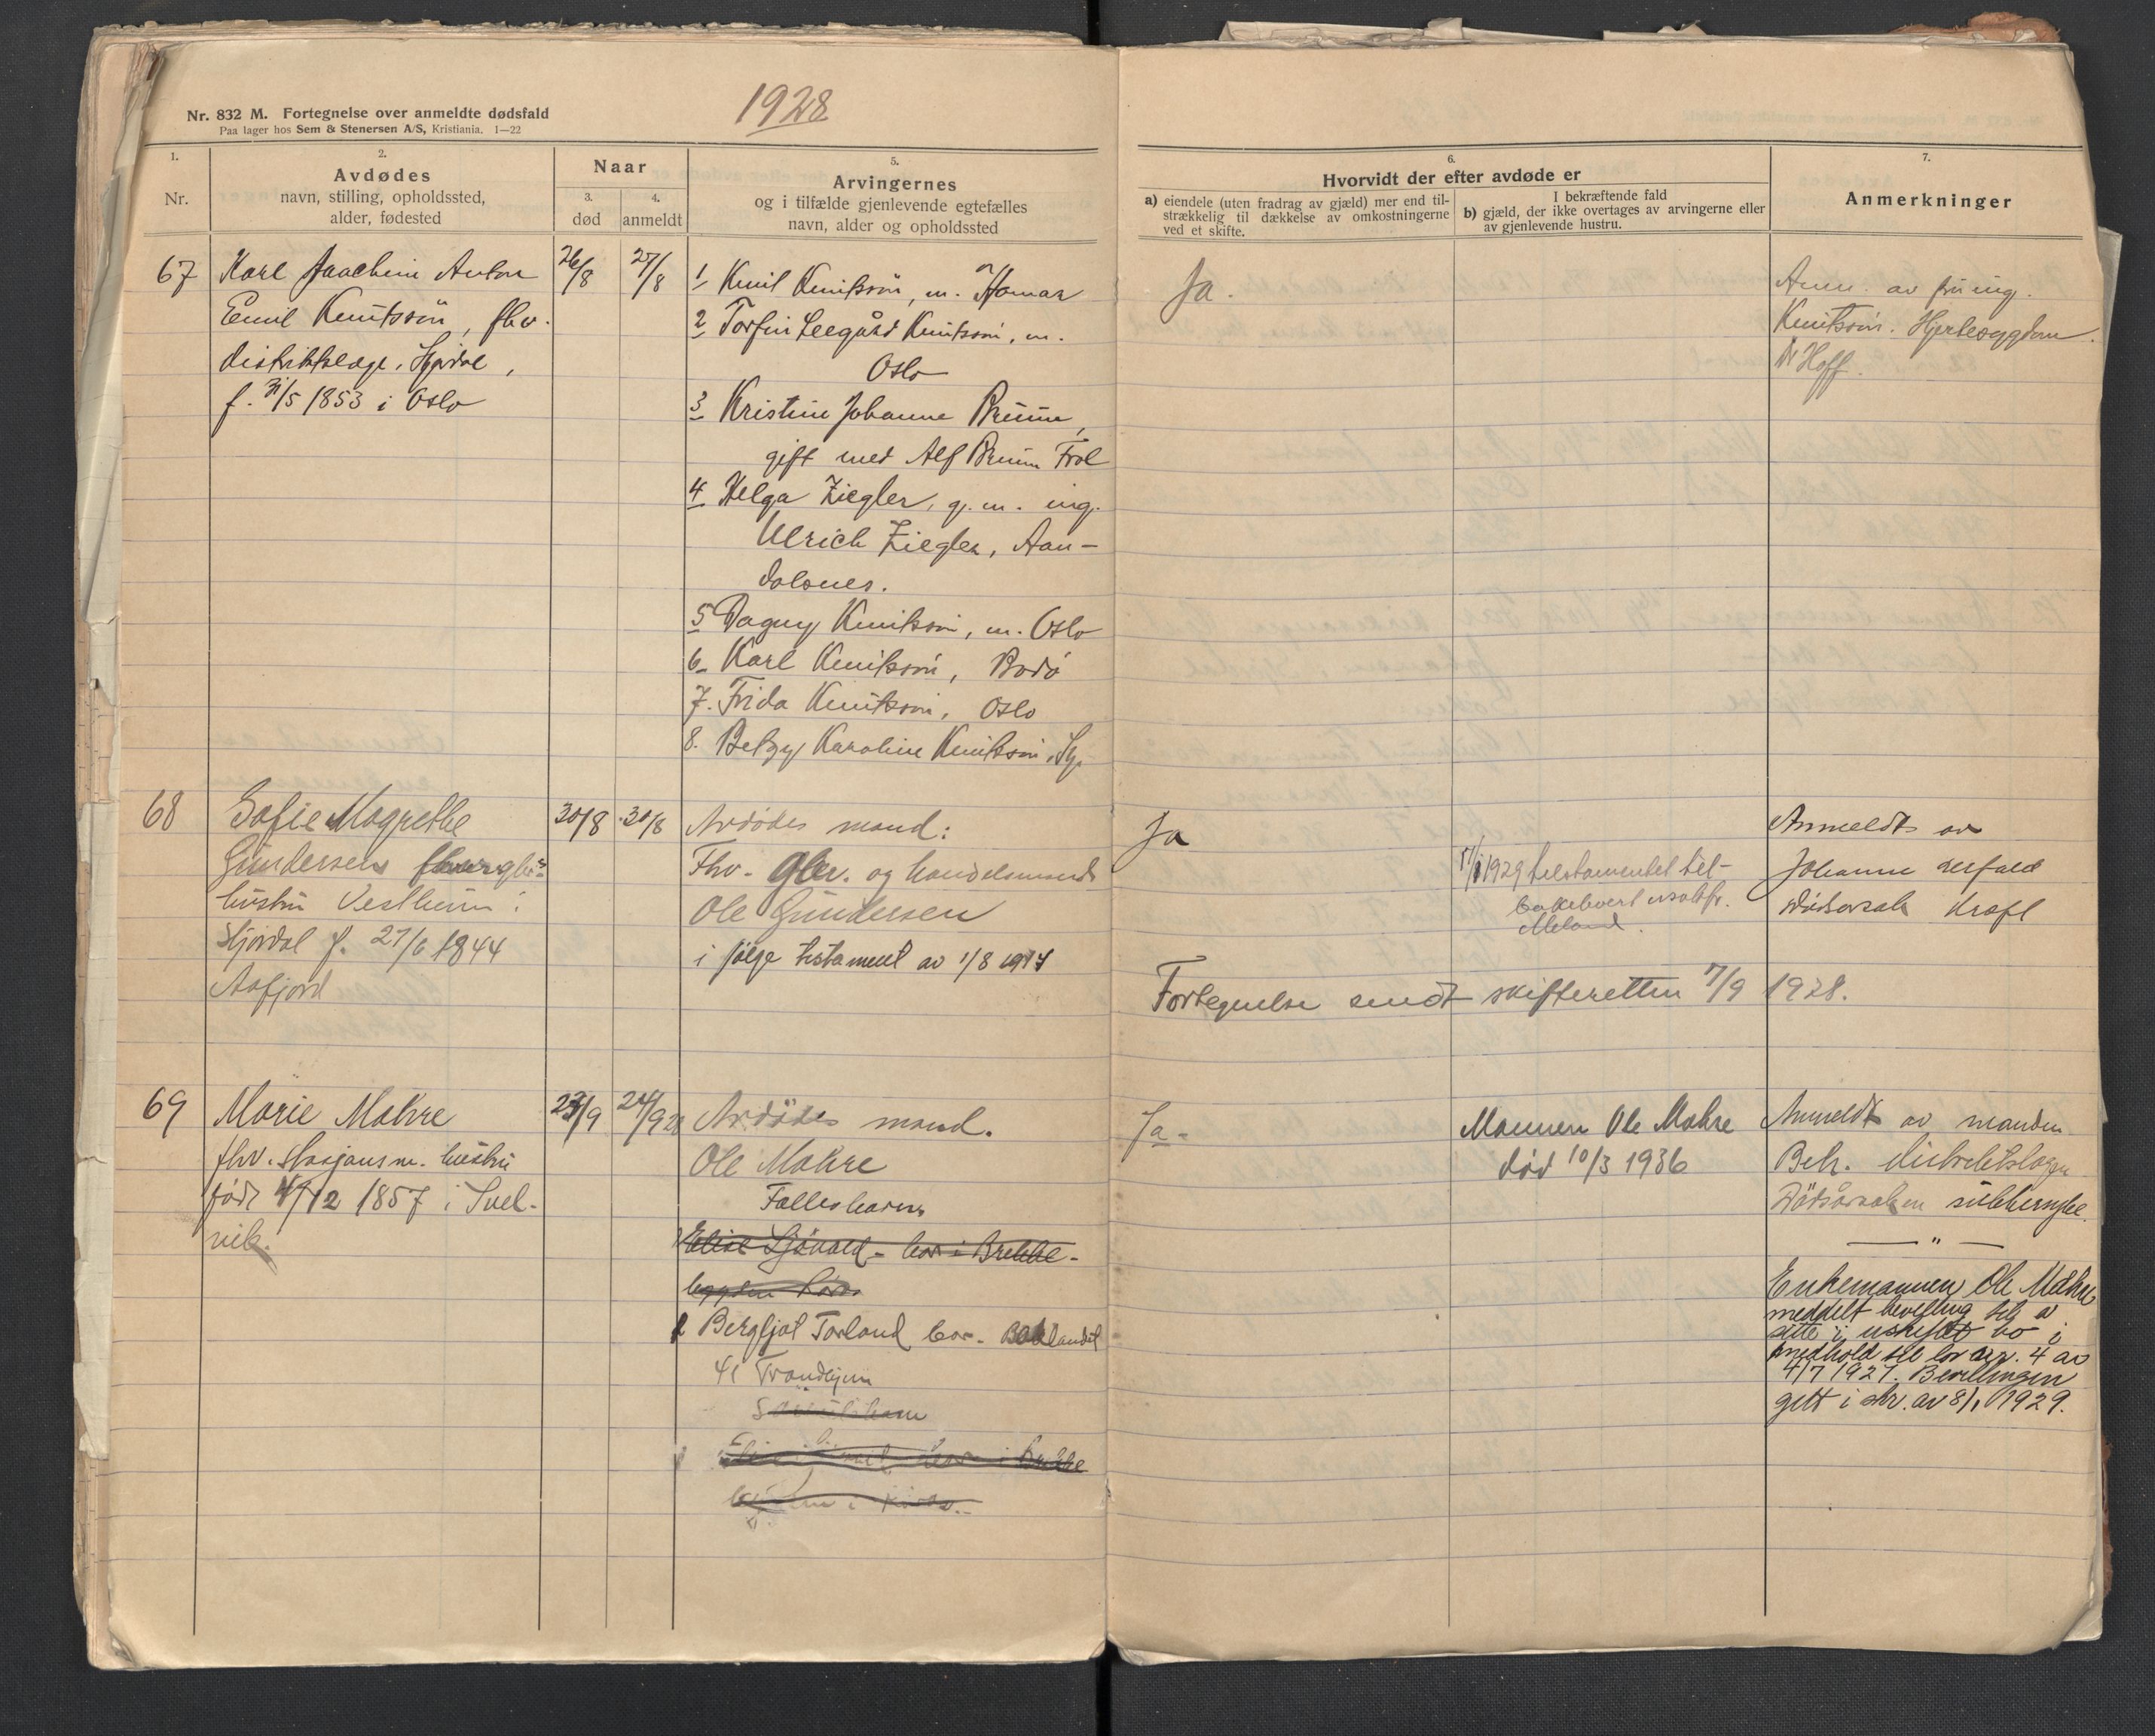 1928
Nr. 832 M. Fortegnelse over anmeldte dødsfald
Paa lager hos Sem & Stenersen A/S, Kristiania. 1—22
1.
Nr.
2.
Avdødes
navn, stilling, opholdssted,
alder, fødested
Naar
3.
død
4.
anmeldt
5.
Arvingernes
og i tilfælde gjenlevende egtefælles
navn, alder og opholdssted
6.
Hvorvidt der efter avdøde er
a) eiendele (uten fradrag av gjæld) mer end til-
strækkelig til dækkelse av omkostningerne
ved et skifte.
I bekræftende fald
b) gjæld, der ikke overtages av arvingerne eller
av gjenlevende hustru.
7.
Anmerkninger
67
Karl Joachim Anton
Emil Knutsson, fhv.
distriktslæge, Stjørdal,
f. 31/5 1853 i Oslo
26/8
27/8
1 Emil Knutsson, m. Hamar
2 Torfin Leegård Knutsson, m.
Oslo
3 Kristine Johanne Bruun,
gift med Alf Bruun Frol
4 Helga Ziegler, g. m. ing.
Ulrich Ziegler, Aan-
dalsnes.
5 Dagny Knutsson, m. Oslo
6 Karl Knutsson, Bodø
7. Frida Knutsson, Oslo
8. Betzy Karoline Knutsson, Stj.
Ja.
Anm. av fru ing.
Knutsson. Hjertesygdom.
Dr Hoff.
68
Sofie Magrethe
Gundersen
hustru Vestheim i
Stjørdal f. 27/6 1844
Aafjord
30/8
30/8
Avdødes mand:
Fhv. gbr. og handelsmand
Ole Gundersen
i følge testament av 1/8 1914
Ja
1929 testamentet til-
Meland.
Anmeldt av
Johanne
Dødsorsak Kræft
Fortegnelse sendt skifteretten 7/9 1928.
69
Marie Mahre
fhv. stasjonsm. hustru
født 4/12 1857 i Svel-
vik.
23/9
24/9 28
Avdødes mand.
Ole Mahre
Fællesbarn
bor i Brekke-
bygden Røros
Bergljot Torland bor. Baklandet
41 Trondhjem
Særkulsbarn
bor i Brekke
Ja.
Mannen Ole Mahre
død 10/3 1936
Anmeldt av manden
Beh. distriktslægen
Dødsårsaken sukkersyke.
— " —
Enkemannen Ole Mahre
meddelt bevilling til å
sitte i uskiftet bo i
medhold til lov nr. 4 av
4/7 1927. Bevillingen
gitt i skr. av 8/1 1929.